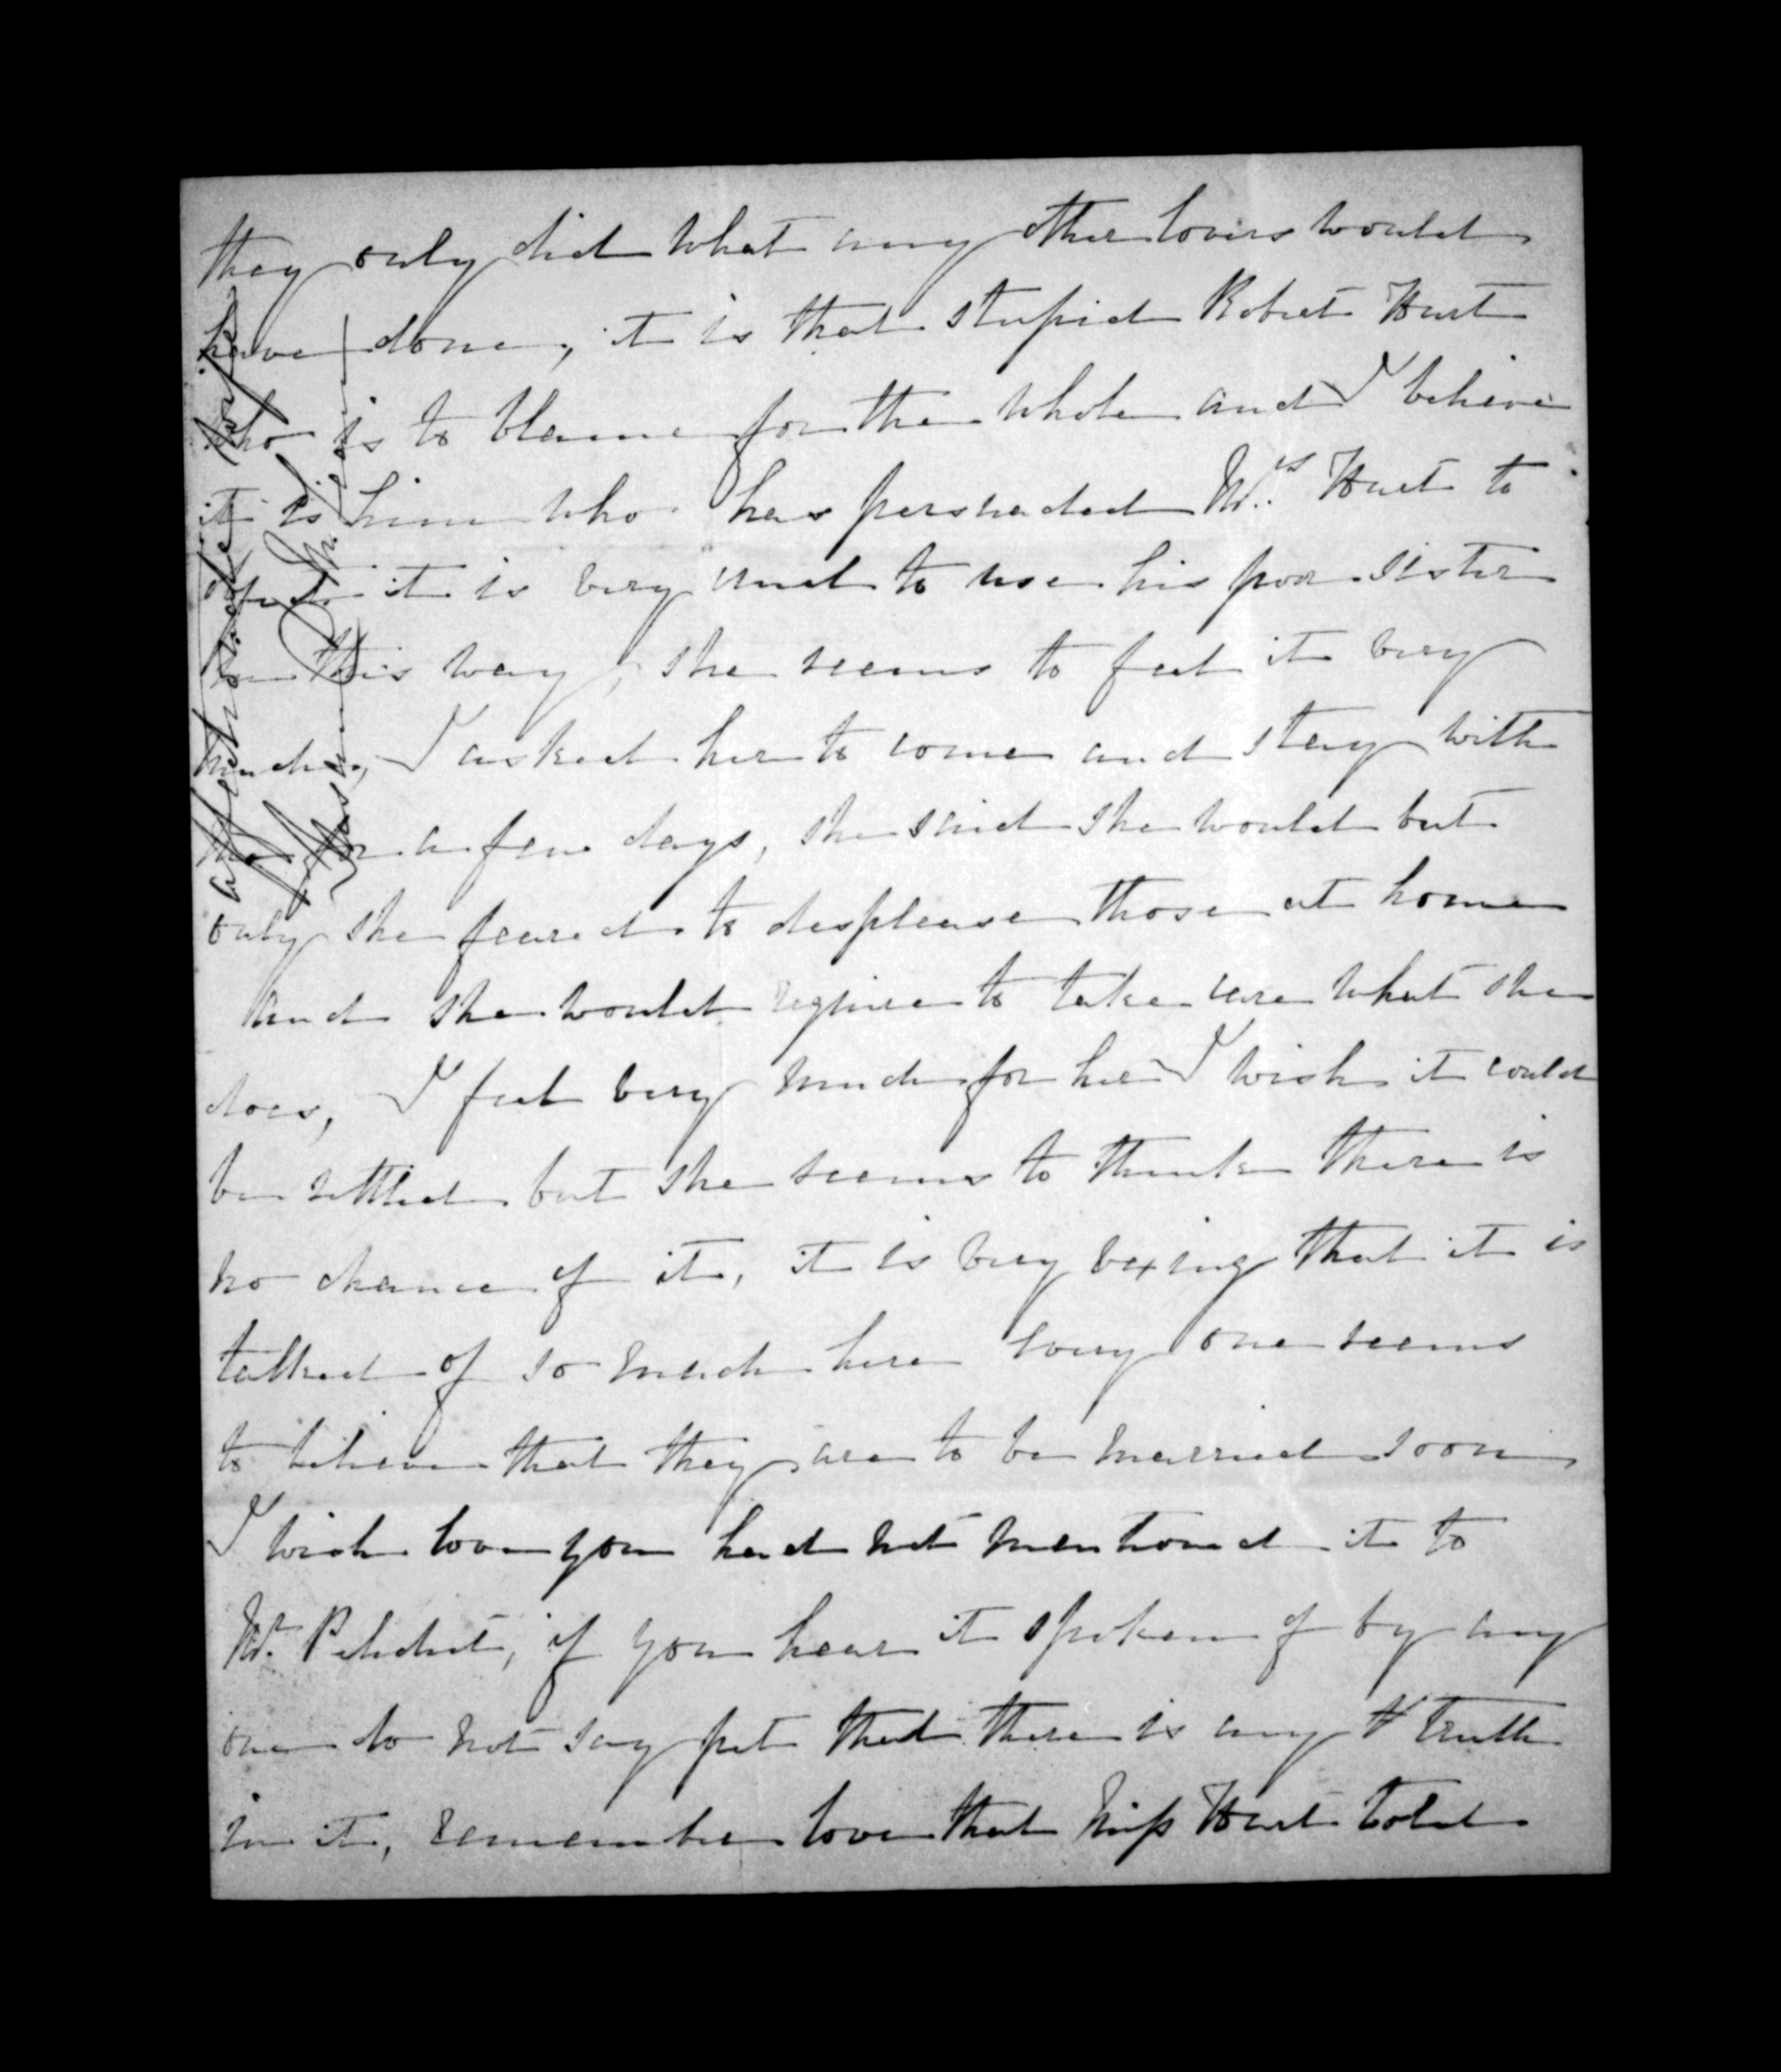 they only did what any other lovers would
have done, it is that stupid Robert Hart
who is to blame for the whole and I believe
it is him who has persuaded Mrs Hart to
it is very cruel to use his poor sister
in this way, she seems to feel it very
much, I asked her to come and stay with
me for a few days, she said she would but
only she feared to desplease those at home
and she would require to take care what she
does, I feel very much for her I wish it could
be settled but she seems to think there is
no chance of it, it is very vexing that it is
talked of so much here every one seems
to believe that they are to be married soon
I wish love you had not mentioned it to
Mr. if you hear it spoken of by any
one do not say pet that there is any truth
in it, remember love that Miss Hart told